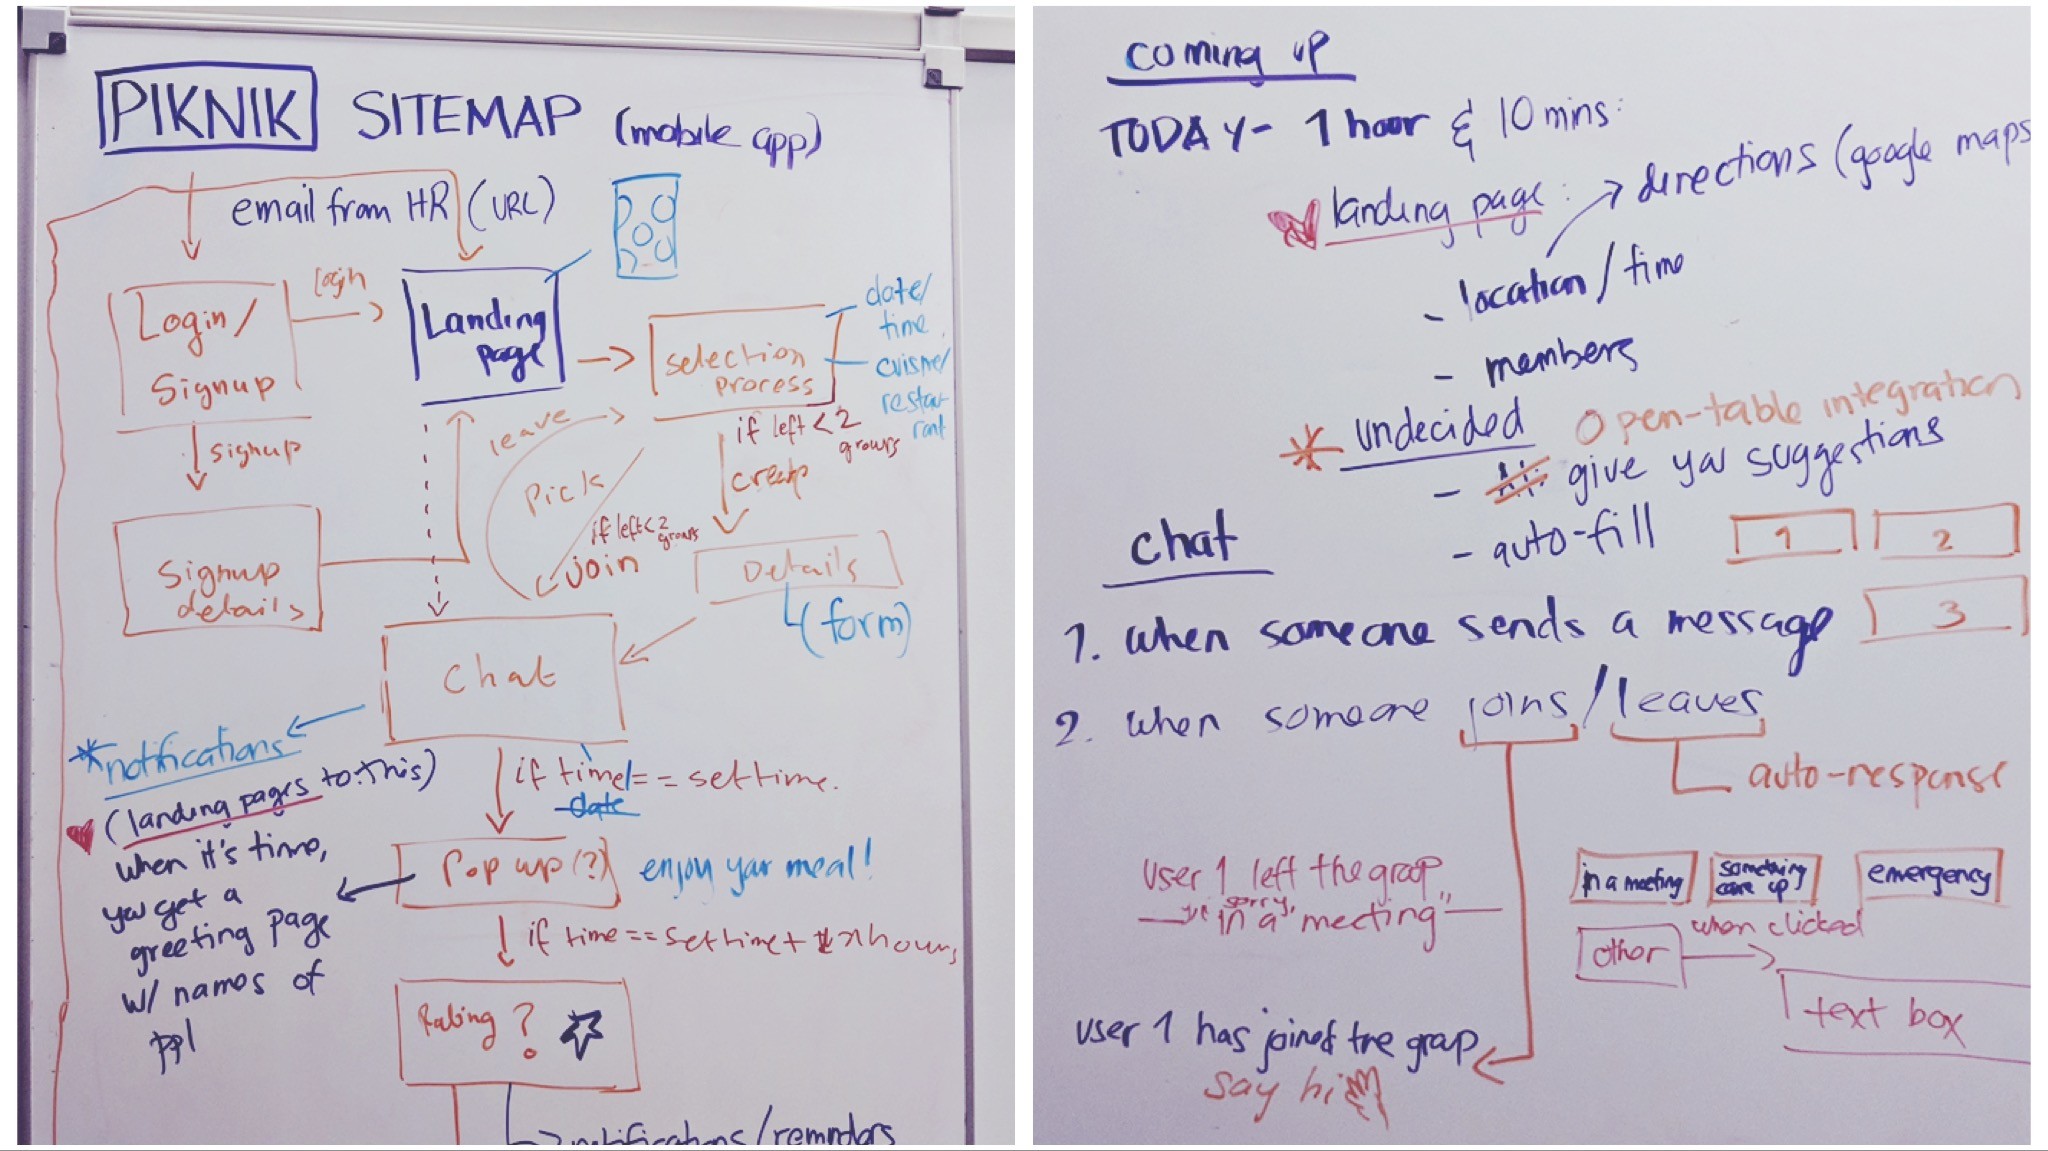 PIKNIK SITEMAP (mobile app)
email from HR (URL)
Login/
Signup
login
Landing
page
selection
process
date/
time
cuisine/
restau-
rant
signup
leave
Pick
if left<2
groups
create
if left<2
groups
join
Signup
details
Details
(form)
Chat
*notifications
(landing pages to this)
when it's time,
you get a
greeting page
w/ names of
ppl
if time == settime.
date
Pop up(?)
enjoy your meal!
if time == settime + x hours
Rating?
notifications/reminders
coming up
TODAY- 1 hour & 10 mins:
landing page:
directions (google maps
- location/time
- members
* undecided
Open-table integration
- give you suggestions
- auto-fill
1
2
3
chat
1. when someone sends a message
2. when someone joins/leaves
auto-response
User 1 left the group
sorry,
in a meeting"
in a meeting
something
came up
emergency
other
when clicked
text box
user 1 has joined the group
say hi